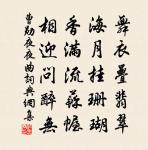 舞衣疊翡翠
海月桂珊瑚
香滿流蘇幄
相迎問醉無
曹勛夜夜曲詞典網集